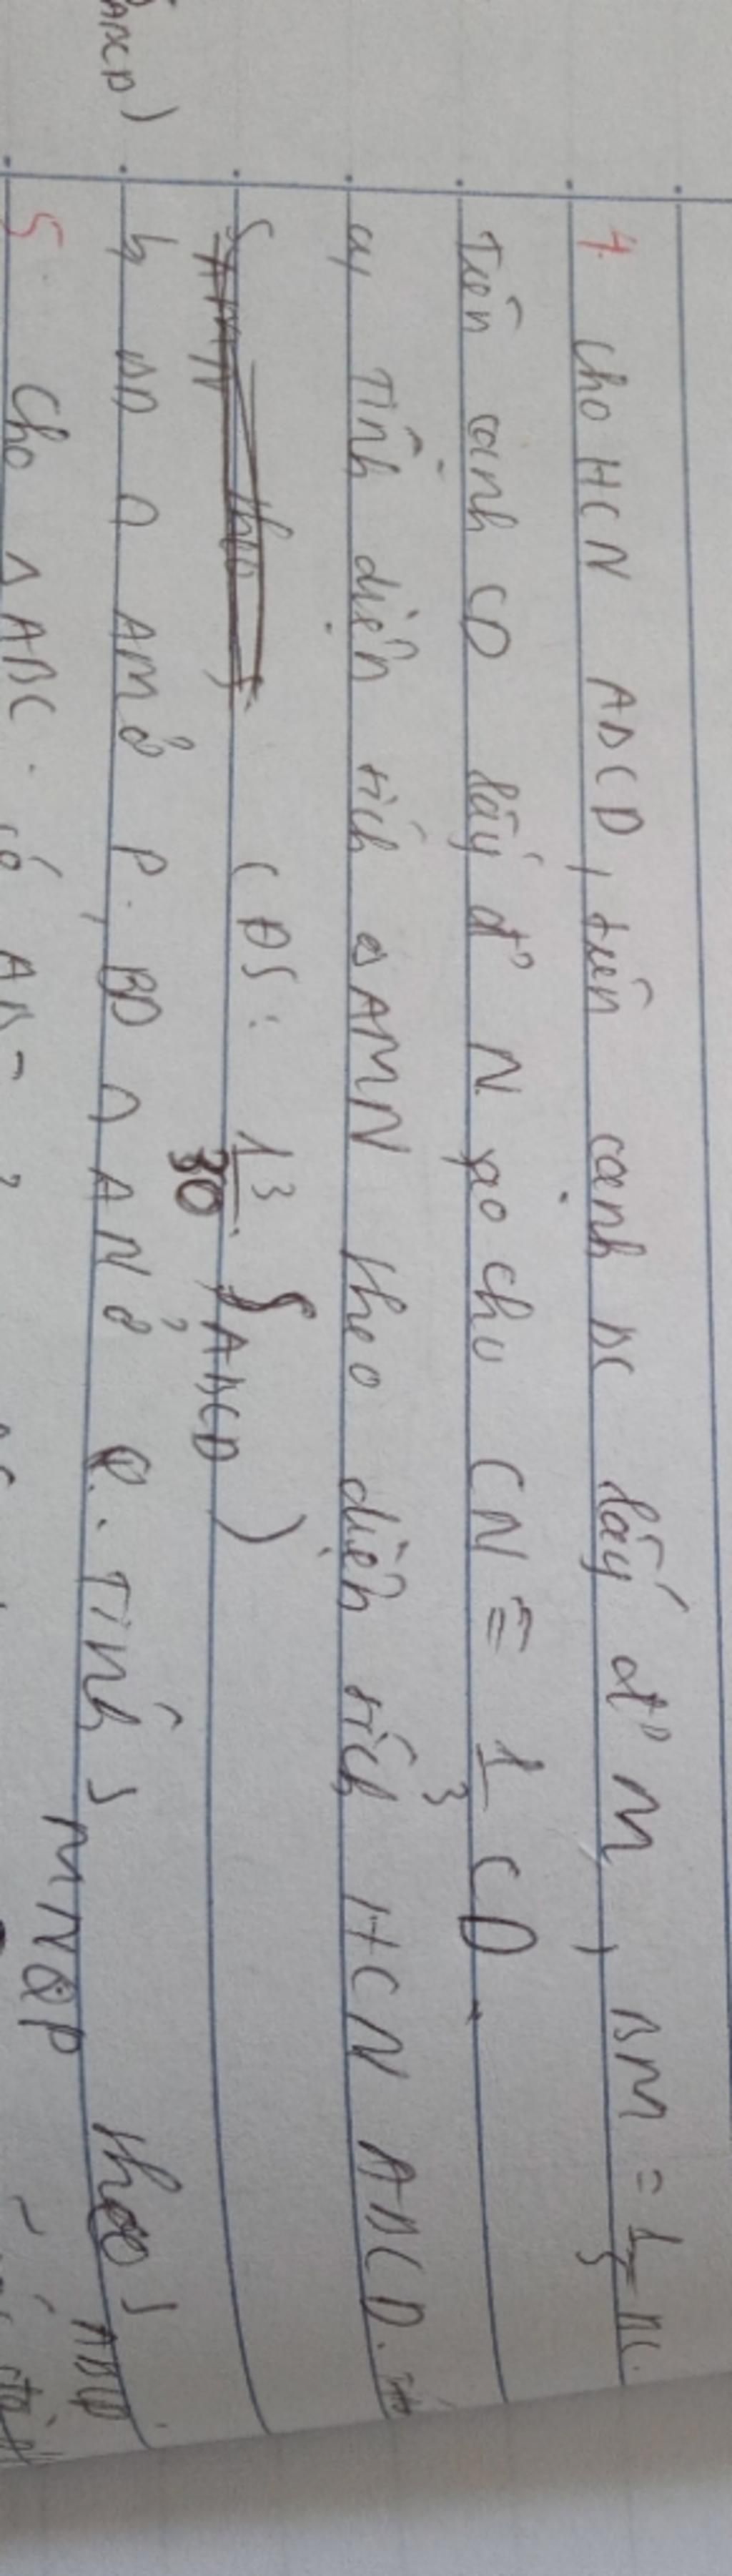 ABCD)
4. Cho HCN ABCD, trên cạnh BC lấy đ' M, BM = 1/5 BC.
Trên cạnh CD lấy đ' N sao cho CN = 1/3 CD.
a, Tính diện tích ΔAMN theo diện tích HCN ABCD.
(ĐS: 13/30 S ABCD)
b, BD ∩ AM ở P, BD ∩ AN ở Q. Tính S MNQP theo S ABCD.
5. Cho ΔABC. có AB =